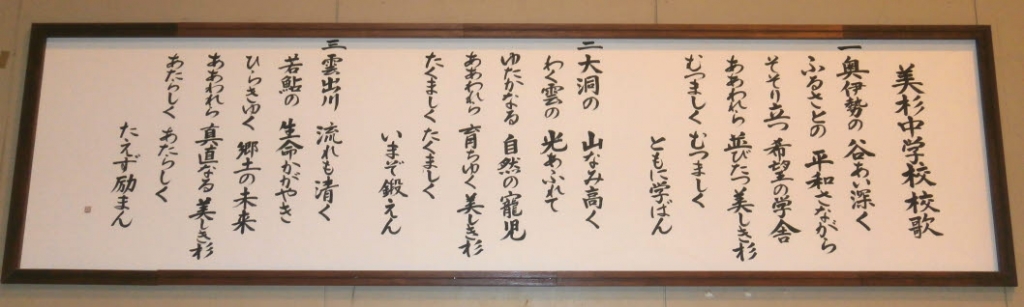 美杉中学校校歌
一 奥伊勢の 谷あい深く
ふるさとの 平和さながら
そそり立つ 希望の学舎
ああわれら 並びたつ 美しき杉
むつましく むつましく
ともに学ばん
二 大洞の 山なみ高く
わく雲の 光あふれて
ゆたかなる 自然の寵児
ああわれら 育ちゆく 美しき杉
たくましく たくましく
いまぞ鍛えん
三 雲出川 流れも清く
若鮎の 生命かがやき
ひらきゆく 郷土の未来
ああわれら 真直なる 美しき杉
あたらしく あたらしく
たえず励まん